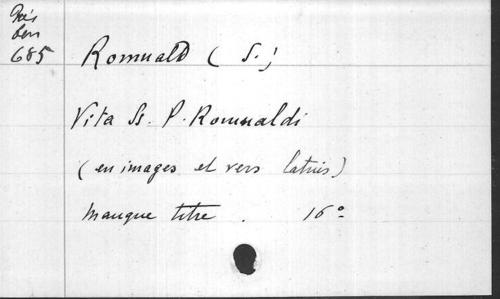 Rés
Ben
685
Romuald (S.)
Vita Ss. P. Romualdi
(en images et vers latins)
Manque titre . 16°